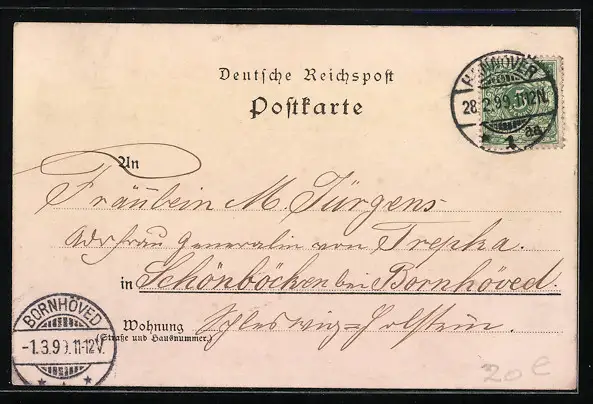 Deutsche Reichspost
Postkarte
HANNOVER
28.2.99.11-12V.
1 aa
An
Fräulein M. Jürgens
Adr Frau Generalin von Trepka.
in Schönböcken bei Bornhöved.
Wohnung Schleswig-Holstein.
(Straße und Hausnummer.)
BORNHÖVED
-1.3.99.11-12V.
20 e